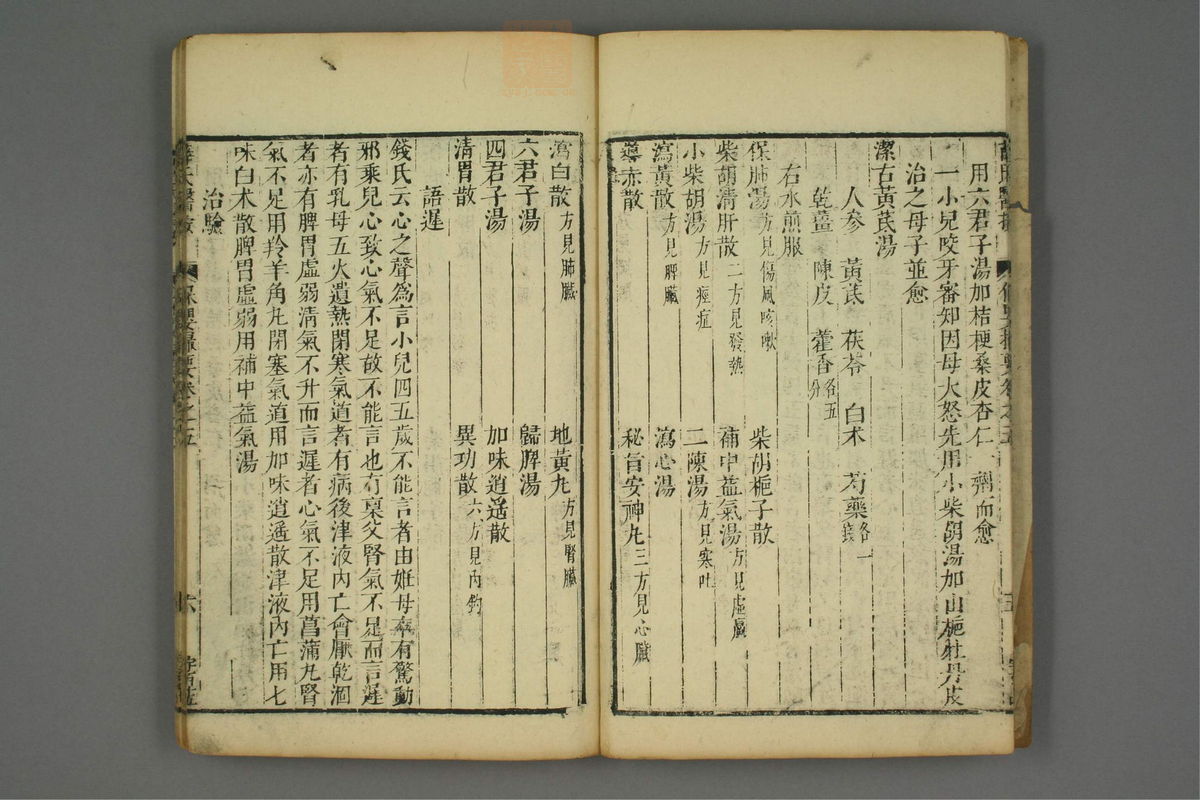 用六君子湯加桔梗桑皮杏仁一劑而愈
一小兒咬牙審知因母大怒先用小柴胡湯加山梔牡丹皮
治之母子並愈
潔古黃芪湯
人參 黃芪 茯苓 白术 芍藥各一錢
乾薑 陳皮 藿香各五分
右水煎服
保肺湯方見傷風咳嗽 柴胡梔子散
柴胡清肝散二方見發熱 補中益氣湯方見虛羸
小柴胡湯方見痙症 二陳湯方見寒吐
瀉黃散方見脾臟 瀉心湯
導赤散 秘旨安神丸三方見心臟
瀉白散方見肺臟 地黃丸方見腎臟
六君子湯 歸脾湯
四君子湯 加味逍遥散
清胃散 異功散六方見內釣
語遲
錢氏云心之聲爲言小兒四五歲不能言者由姙母卒有驚動
邪乘兒心致心氣不足故不能言也有稟父腎氣不足而言遲
者有乳母五火遺熱閉塞氣道者有病後津液內亡會厭乾涸
者亦有脾胃虛弱清氣不升而言遲者心氣不足用菖蒲丸腎
氣不足用羚羊角丸閉塞氣道用加味逍遥散津液內亡用七
味白术散脾胃虛弱用補中益氣湯
治驗
薛氏醫按 保嬰撮要卷之五 六